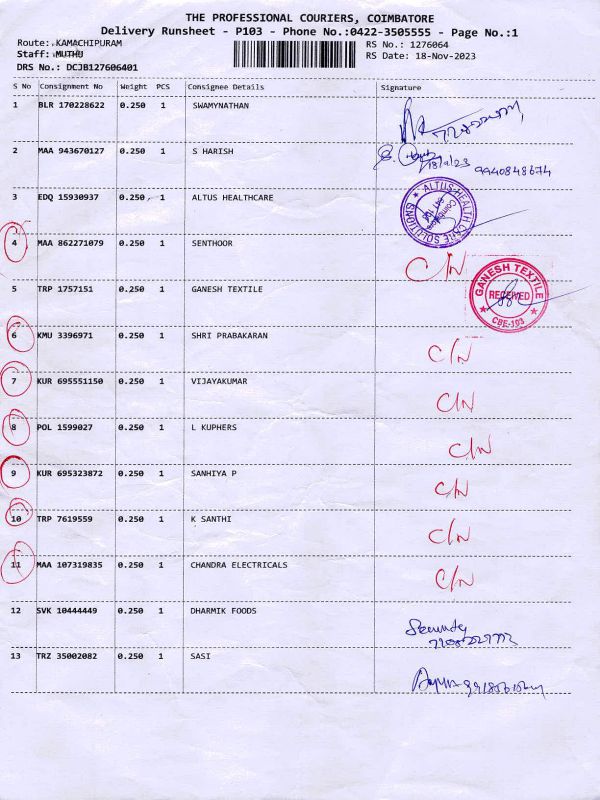 THE PROFESSIONAL COURIERS, COIMBATORE
Delivery Runsheet - P103 - Phone No.:0422-3505555 - Page No.:1
Route: KAMACHIPURAM RS No.: 1276064
Staff: MUTHU RS Date: 18-Nov-2023
DRS No.: DCJB127606401
S No Consignment No Weight PCS Consignee Details Signature
1 BLR 170228622 0.250 1 SWAMYNATHAN
2 MAA 943670127 0.250 1 S HARISH
9940848674
3 EDQ 15930937 0.250 1 ALTUS HEALTHCARE
ALTUS HEALTH CARE SOLUTIONS
Coimbatore
4 MAA 862271079 0.250 1 SENTHOOR C/N
5 TRP 1757151 0.250 1 GANESH TEXTILE
GANESH TEXTILE
RECEIVED
CBE-103
6 KMU 3396971 0.250 1 SHRI PRABAKARAN C/N
7 KUR 695551150 0.250 1 VIJAYAKUMAR C/N
8 POL 1599027 0.250 1 L KUPHERS C/N
9 KUR 695323872 0.250 1 SANHIYA P C/N
10 TRP 7619559 0.250 1 K SANTHI C/N
11 MAA 107319835 0.250 1 CHANDRA ELECTRICALS C/N
12 SVK 10444449 0.250 1 DHARMIK FOODS
13 TRZ 35002082 0.250 1 SASI